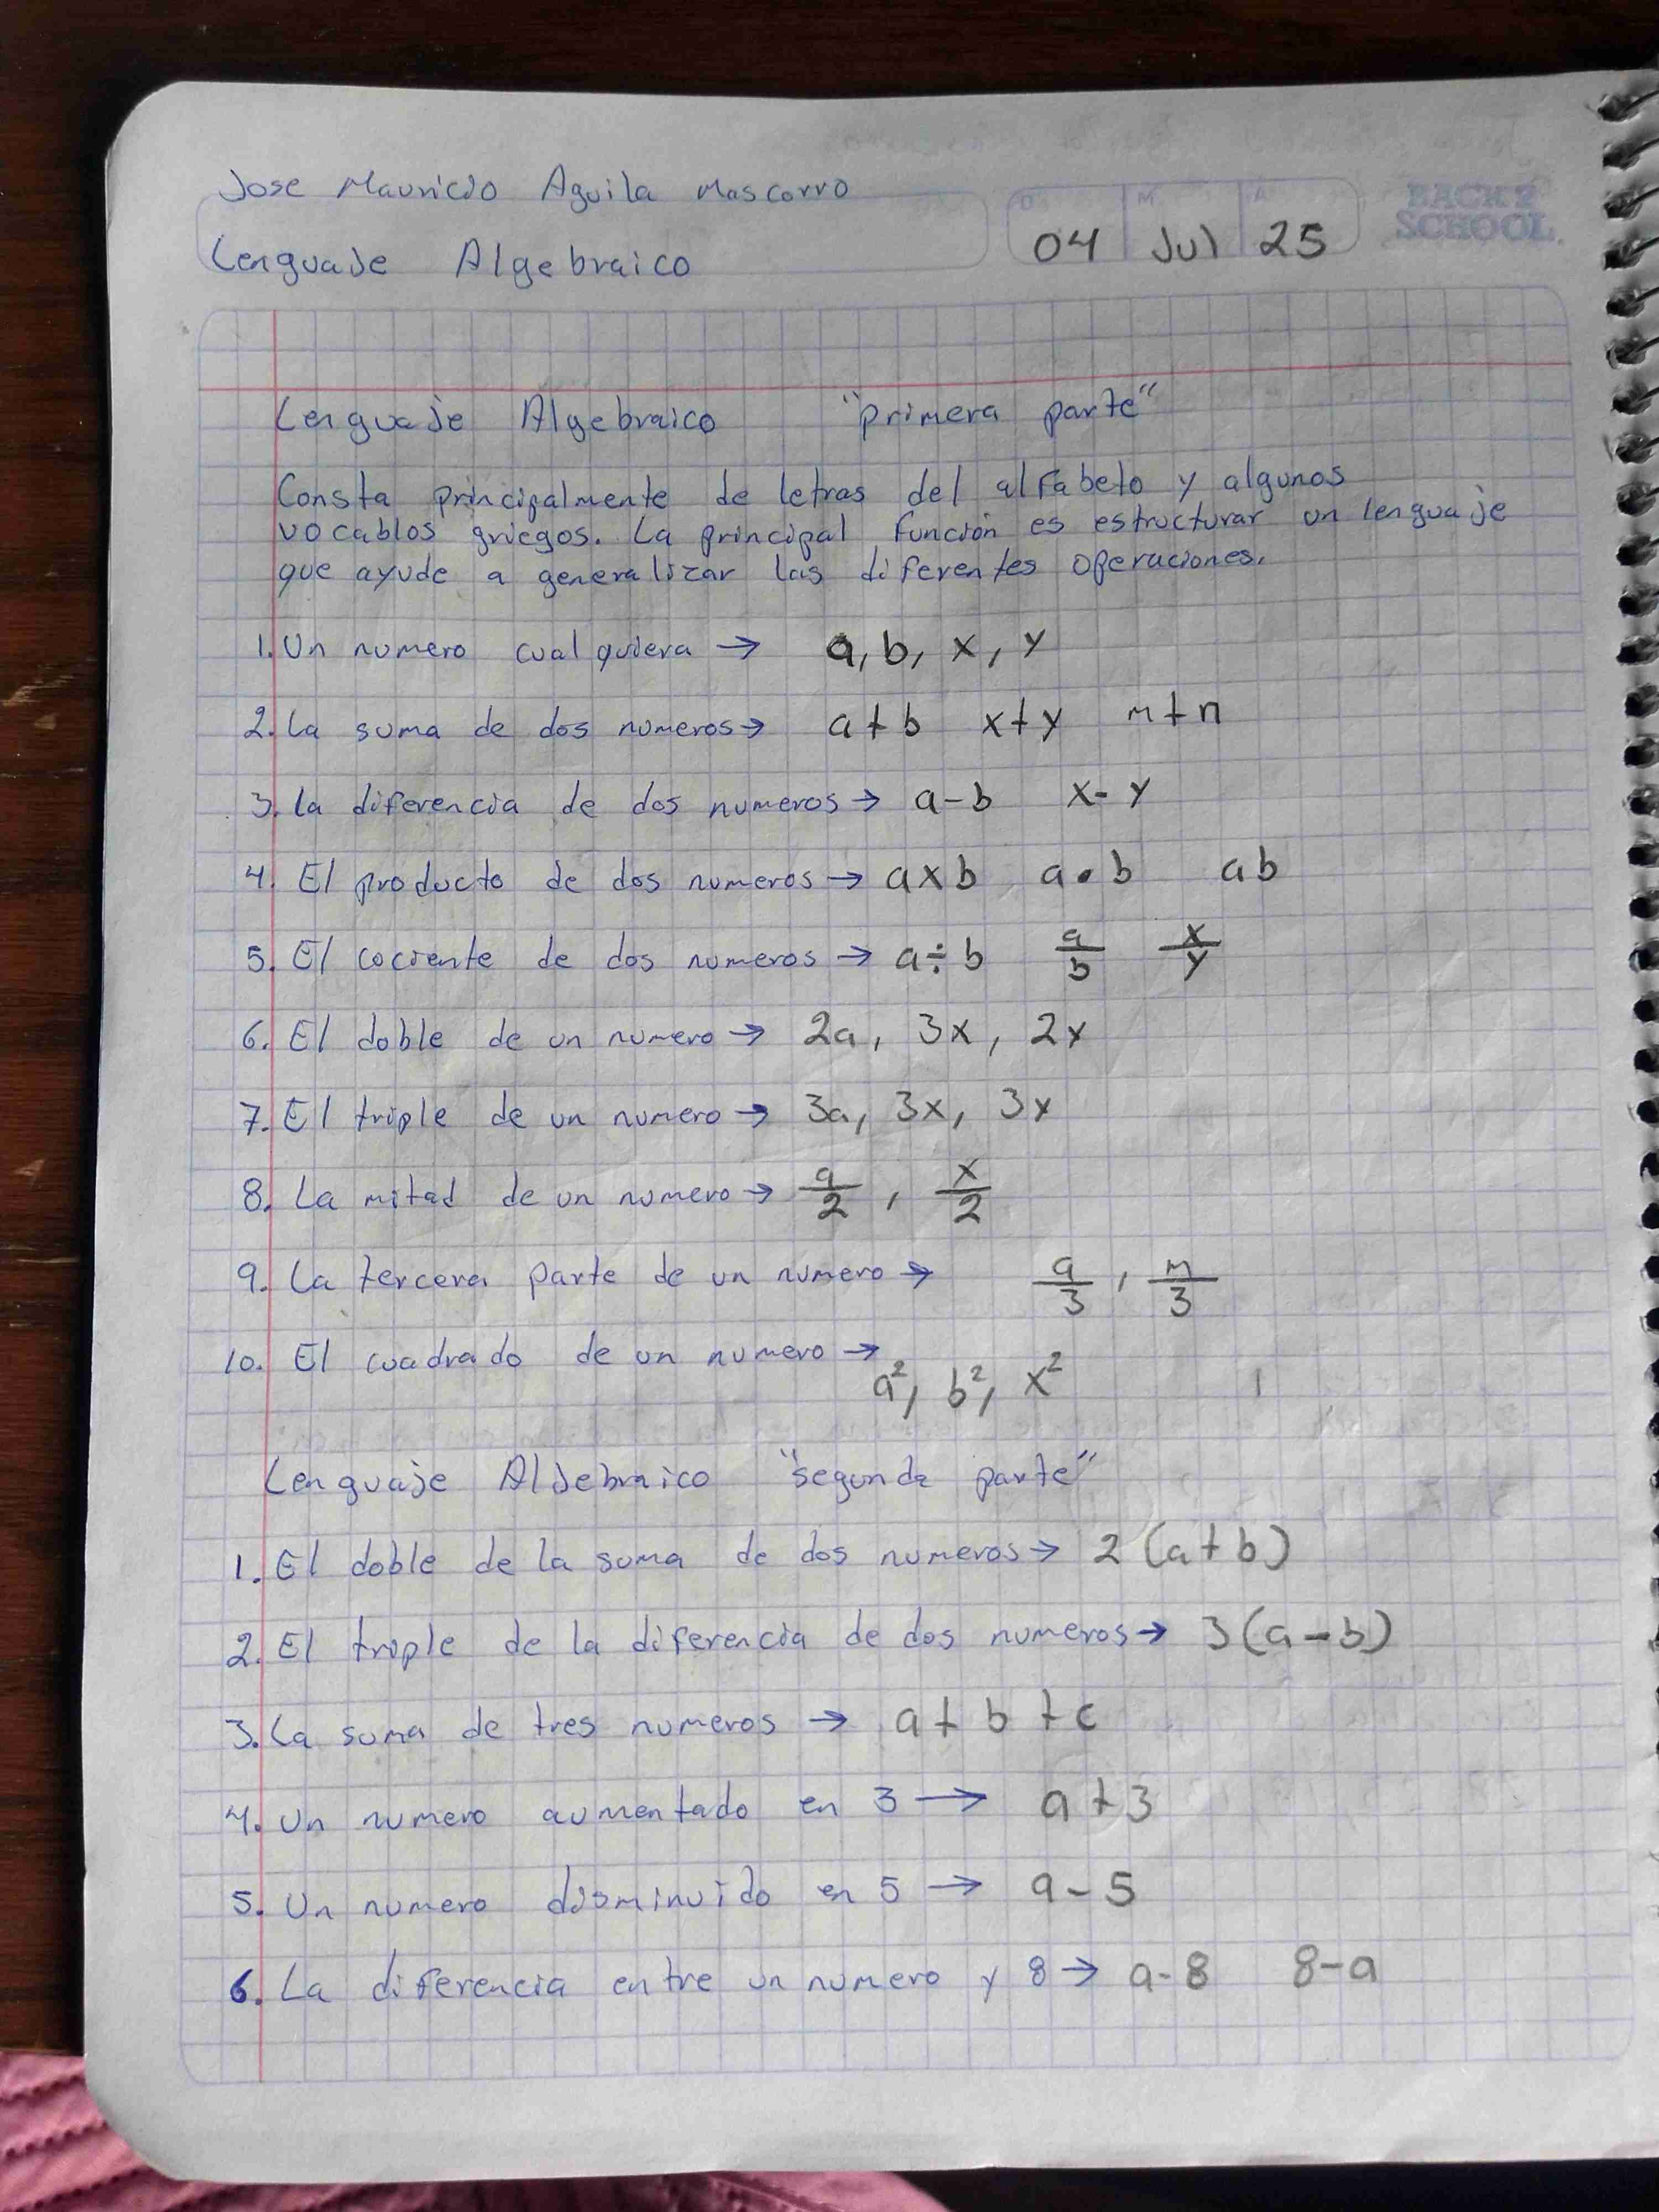 Jose Mauricio Aguila Mascorro
D M A
BACK 2
SCHOOL
04 Jul 25
Lenguaje Algebraico
Lenguaje Algebraico "primera parte"
Consta principalmente de letras del alfabeto y algunos
vocablos griegos. La principal función es estructurar un lenguaje
que ayude a generalizar las diferentes operaciones.
1. Un numero cualquiera → a, b, x, y
2. La suma de dos numeros → a+b x+y m+n
3. la diferencia de dos numeros → a-b x-y
4. El producto de dos numeros → axb a•b ab
5. El cociente de dos numeros → a÷b a/b x/y
6. El doble de un numero → 2a, 3x, 2y
7. El triple de un numero → 3a, 3x, 3y
8. La mitad de un numero → a/2, x/2
9. La tercera parte de un numero → a/3, m/3
10. El cuadrado de un numero →
a², b², x²
Lenguaje Aljebraico "segunda parte"
1. El doble de la suma de dos numeros → 2(a+b)
2. El triple de la diferencia de dos numeros → 3(a-b)
3. La suma de tres numeros → a+b+c
4. Un numero aumentado en 3 → a+3
5. Un numero disminuido en 5 → a-5
6. La diferencia entre un numero y 8 → a-8 8-a